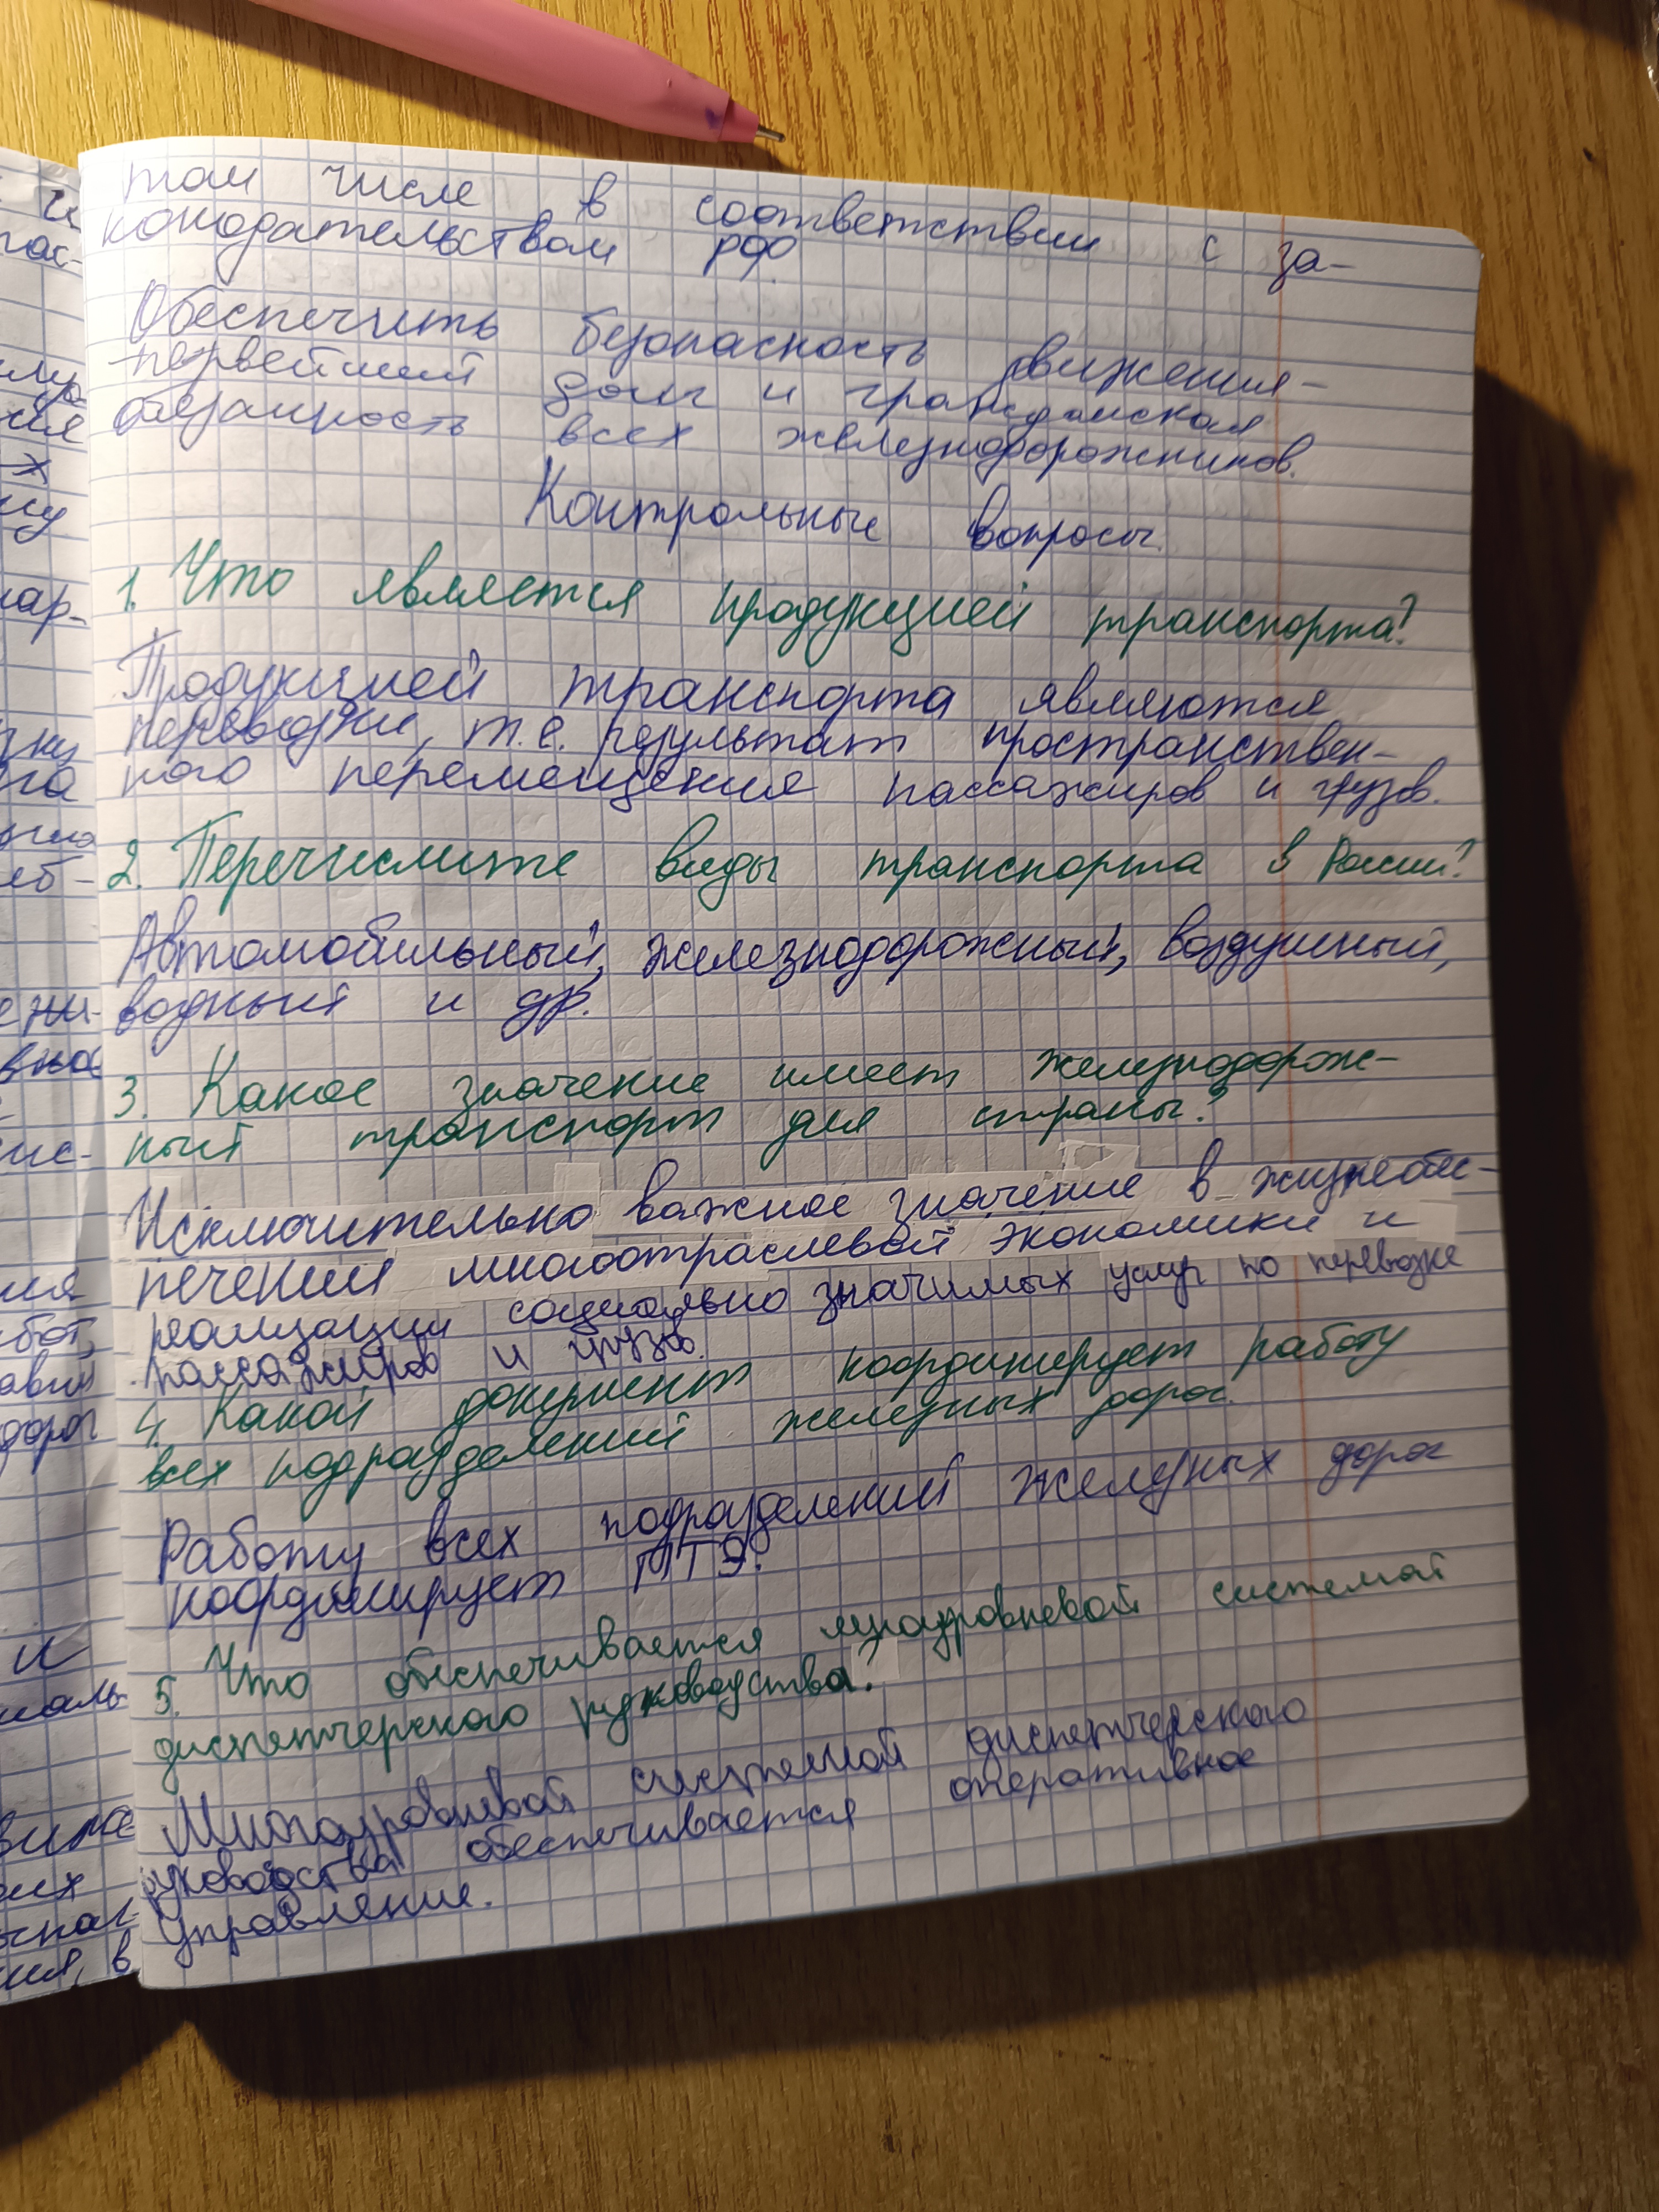 том числе в соответствии с за-
конодательством РФ.
Обеспечить безопасность движения-
первейший долг и гражданская
обязанность всех железнодорожников.
Контрольные вопросы.
1. Что является продукцией транспорта?
Продукцией транспорта являются
перевозки, т.е. результат пространствен-
ного перемещения пассажиров и грузов.
2. Перечислите виды транспорта в России?
Автомобильный, железнодорожный, воздушный,
водный и др.
3. Какое значение имеет железнодорож-
ный транспорт для страны?
Исключительно важное значение в жизнеобес-
печении многоотраслевой экономики и
реализации социально значимых услуг по перевозке
пассажиров и грузов.
4. Какой документ координирует работу
всех подразделений железных дорог.
Работу всех подразделений железных дорог
координирует ПТЭ.
5. Что обеспечивается многоуровневой системой
диспетчерского руководства?
Многоуровневой системой диспетчерского
руководства обеспечивается оперативное
управление.